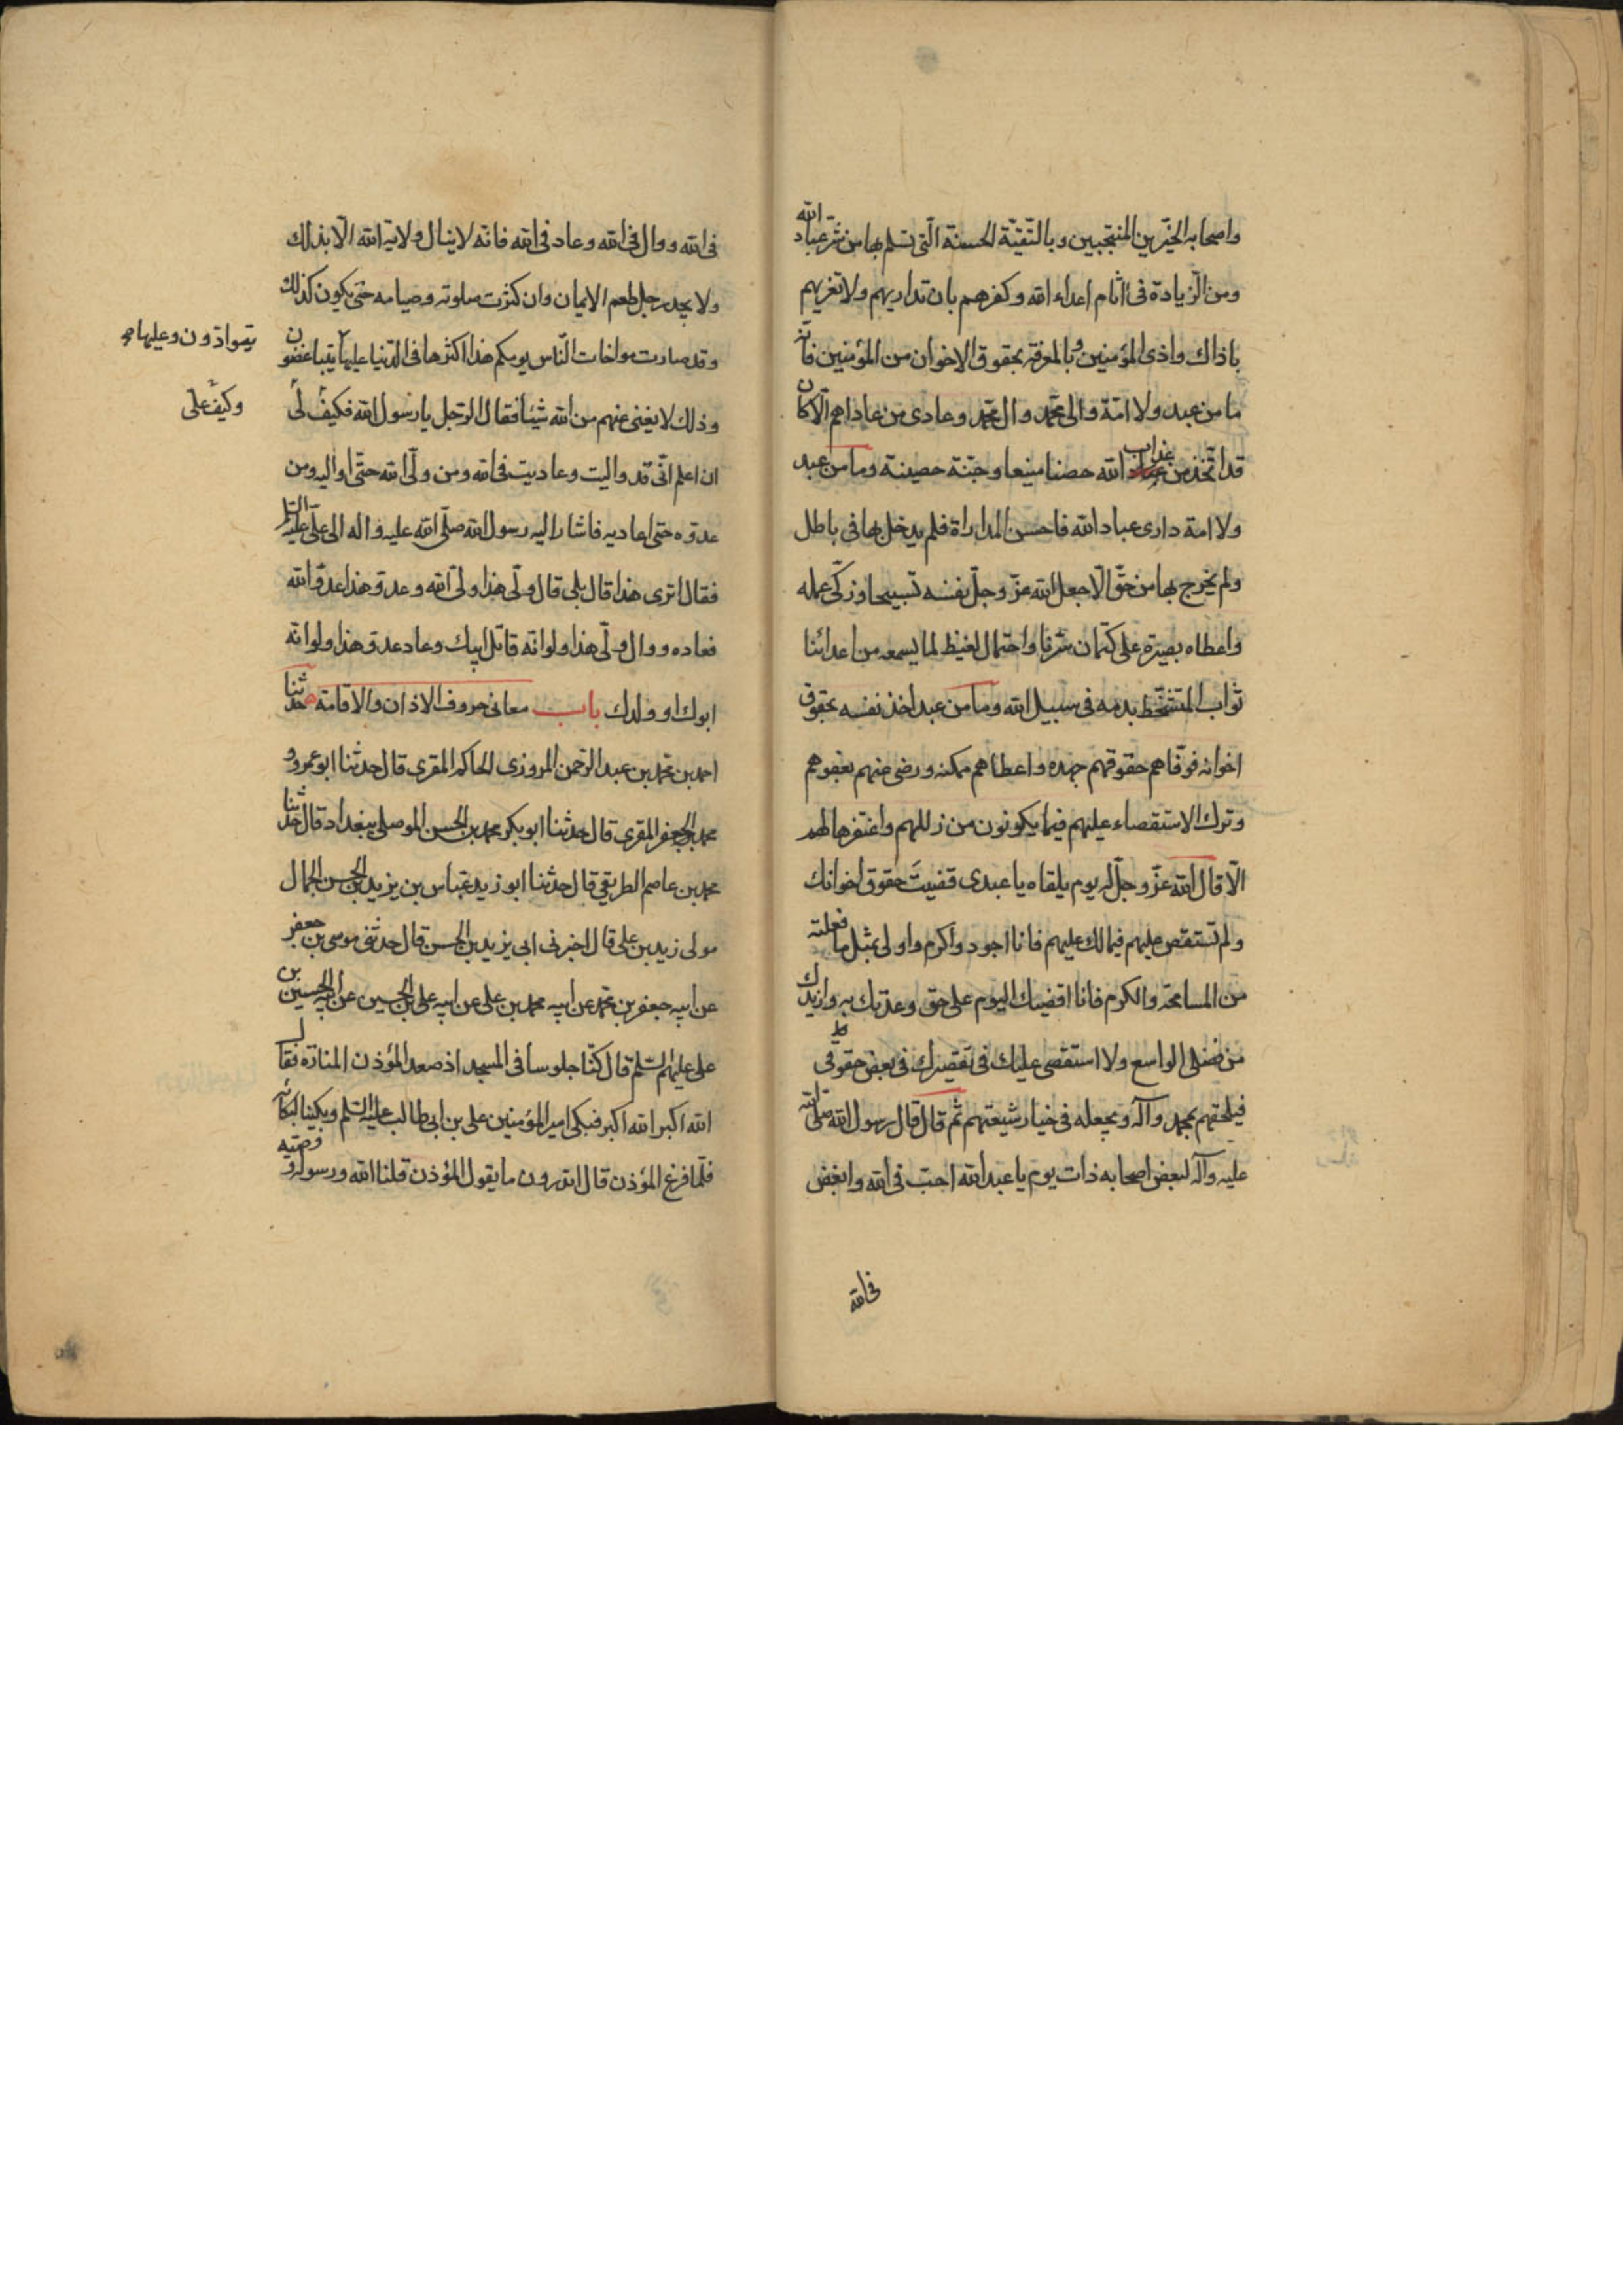 واصحابه الخيّرين المنتجبين وبالتّقيّة الحسنة الّتى تسلم بها من شرّ عباد الله
ومن الزّيادة فى اثام اعداء الله وكفرهم بان تداريهم ولا تغريهم
باذاك واذى المؤمنين وبالمعرفة بحقوق الاخوان من المؤمنين فانّه
ما من عبد ولا امّة والى محمّد وال محمّد وعادى من عاداهم الّا كان
قد اتّخذ من عذاب الله حصنا منيعا وجنّة حصينة وما من عبد
ولا امة دارى عباد الله فاحسن المداراة فلم يدخل بها فى باطل
ولم يخرج بها من حقّ الّا جعل الله عزّ وجلّ نفسه تسبيحا وزكّى عمله
واعطاه بصيرة على كتمان سرّنا واحتمال الغيظ لما يسمعه من اعدائنا
ثواب المتشحّط بدمه فى سبيل الله وما من عبد اخذ نفسه بحقوق
اخوانه فوفّاهم حقوقهم جهده واعطاهم ممكنه ورضى منهم بعفوهم
وترك الاستقصاء عليهم فيما يكونون من زللهم واغتفرها لهم
الّا قال الله عزّ وجلّ له يوم يلقاه يا عبدى قضيت حقوق اخوانك
ولم تستقص عليهم فيما لك عليهم فانا اجود واكرم واولى بمثل ما فعلته
من المسامحة والكرم فانا اقضيك اليوم على حق وعدتك به وازيدك
من فضلى الواسع ولا استقصى عليك فى تقصيرك فى بعض حقوقى
فيلحقهم بمحمد وآله ويجعله فى خيار شيعتهم ثم قال قال رسول الله صلى الله
عليه وآله لبعض اصحابه ذات يوم يا عبد الله احبّ فى الله وابغض
فى الله
فى الله ووال فى الله وعاد فى الله فانّه لا ينال ولاية الله الّا بذلك
ولا يجد رجل طعم الايمان وان كثرت صلوته وصيامه حتى يكون كذلك
وقد صارت مواخات النّاس يومكم هذا اكثرها فى الدّنيا عليها يتباغضون
يتوادّون وعليها
وذلك لا يغنى عنهم من الله شيئا فقال الرّجل يا رسول الله فكيف لى
وكيف على
ان اعلم انّى قد واليت وعاديت فى الله ومن ولّى الله حتّى اواليه ومن
عدوّه حتى اعاديه فاشار اليه رسول الله صلّى الله عليه واله الى علىّ عليه السلم
فقال اترى هذا قال بلى قال ولّى هذا ولىّ الله وعدوّ هذا عدوّ الله
فعاده ووال ولّى هذا ولو انّه قاتل ابيك وعاد عدوّ هذا ولو انّه
ابوك او ولدك باب معانى حروف الاذان والاقامة حدثنا
احمد بن محمّد بن عبد الرّحمن المروزى الحاكم المقرى قال حدثنا ابو عمرو
محمد بن جعفر المقرى قال حدثنا ابو بكر محمد بن الحسن الموصلى ببغداد قال حدثنا
محمد بن عاصم الطريقى قال حدثنا ابو زيد عبّاس بن يزيد بن الحسن الجمال
مولى زيد بن على قال اخبرنى ابى يزيد بن الحسن قال حدثنى موسى بن جعفر
عن ابيه جعفر بن محمّد عن ابيه محمد بن على عن ابيه على بن الحسين عن ابيه الحسين بن
على عليهم السّلم قال كنّا جلوسا فى المسجد اذ صعد المؤذن المنارة فقال
الله اكبر الله اكبر فبكى امير المؤمنين على بن ابى طالب عليه السّلم وبكينا لبكائه
فلمّا فرغ المؤذن قال اتدرون ما يقول المؤذن قلنا الله ورسوله ووصيّه